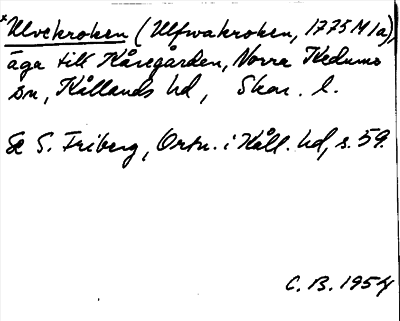 *Ulvekroken (Ulfwakroken, 1775 M 1a),
äga till Kåregården, Norra Kedums
sn, Kållands hd, Skar. l.
Se S. Friberg, Ortn. i Kåll. hd, s. 59.
C. B. 1954